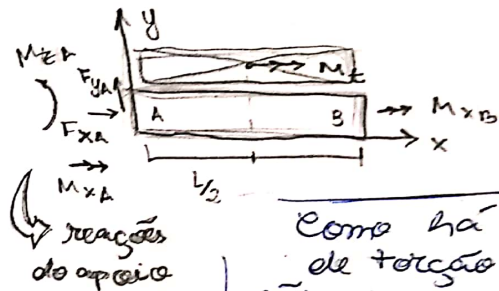 y
M_ZA
F_YA
M_t
A
B
M_XB
F_XA
x
M_XA
L/2
reações
do apoio
Como há
de torção